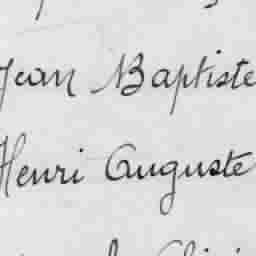 Jean Baptiste
Henri Auguste